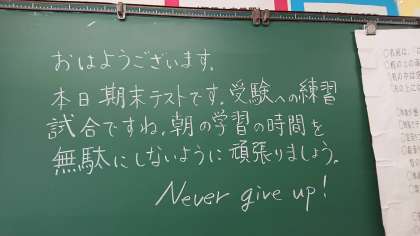 おはようございます。
本日期末テストです。受験への練習
試合ですね。朝の学習の時間を
無駄にしないように頑張りましょう。
Never give up!